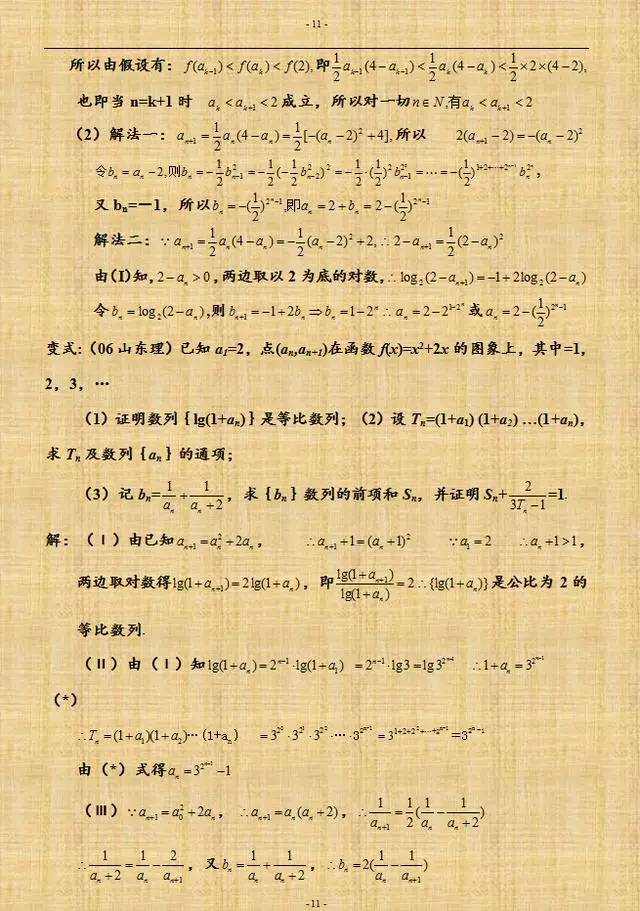 - 11 -
所以由假设有：f(a_{k-1})<f(a_k)<f(2),即\frac{1}{2}a_{k-1}(4-a_{k-1})<\frac{1}{2}a_k(4-a_k)<\frac{1}{2}×2×(4-2),
也即当 n=k+1 时 a_k<a_{k+1}<2成立，所以对一切n∈N,有a_k<a_{k+1}<2
（2）解法一：a_{n+1}=\frac{1}{2}a_n(4-a_n)=\frac{1}{2}[-(a_n-2)^2+4],所以 2(a_{n+1}-2)=-(a_n-2)^2
令b_n=a_n-2,则b_n=-\frac{1}{2}b_{n-1}^2=-\frac{1}{2}(-\frac{1}{2}b_{n-2}^2)^2=-\frac{1}{2}·(\frac{1}{2})^2b_{n-1}^{2^2}=…=-(\frac{1}{2})^{1+2+…+2^{n-1}}b_n^{2^n},
又 b_n=－1，所以b_n=-(\frac{1}{2})^{2^n-1},即a_n=2+b_n=2-(\frac{1}{2})^{2^n-1}
解法二：∵a_{n+1}=\frac{1}{2}a_n(4-a_n)=-\frac{1}{2}(a_n-2)^2+2,∴2-a_{n+1}=\frac{1}{2}(2-a_n)^2
由(Ⅰ)知，2-a_n>0，两边取以 2 为底的对数，∴log_2(2-a_{n+1})=-1+2log_2(2-a_n)
令b_n=log_2(2-a_n),则b_{n+1}=-1+2b_n⇒b_n=1-2^n∴a_n=2-2^{1-2^n}或a_n=2-(\frac{1}{2})^{2^n-1}
变式：（06 山东理）已知 a_1=2，点(a_n,a_{n+1})在函数 f(x)=x^2+2x 的图象上，其中=1，
2，3，…
（1）证明数列｛lg(1+a_n)｝是等比数列；（2）设 T_n=(1+a_1) (1+a_2) …(1+a_n)，
求 T_n 及数列｛a_n｝的通项；
（3）记 b_n=\frac{1}{a_n}+\frac{1}{a_n+2}，求｛b_n｝数列的前项和 S_n，并证明 S_n+\frac{2}{3T_n-1}=1.
解：（Ⅰ）由已知a_{n+1}=a_n^2+2a_n， ∴a_{n+1}+1=(a_n+1)^2 ∵a_1=2 ∴a_n+1>1，
两边取对数得lg(1+a_{n+1})=2lg(1+a_n)，即\frac{lg(1+a_{n+1})}{lg(1+a_n)}=2∴{lg(1+a_n)}是公比为 2 的
等比数列.
（Ⅱ）由（Ⅰ）知lg(1+a_n)=2^{n-1}·lg(1+a_1) =2^{n-1}·lg3=lg3^{2^{n-1}} ∴1+a_n=3^{2^{n-1}}
（*）
∴T_n=(1+a_1)(1+a_2)…(1+a_n) =3^{2^0}·3^{2^1}·3^{2^2}·…·3^{2^{n-1}}=3^{1+2+2^2+…+2^{n-1}}=3^{2^n-1}
由（*）式得a_n=3^{2^{n-1}}-1
（Ⅲ）∵a_{n+1}=a_0^2+2a_n，∴a_{n+1}=a_n(a_n+2)，∴\frac{1}{a_{n+1}}=\frac{1}{2}(\frac{1}{a_n}-\frac{1}{a_n+2})
∴\frac{1}{a_n+2}=\frac{1}{a_n}-\frac{2}{a_{n+1}}，又b_n=\frac{1}{a_n}+\frac{1}{a_n+2}，∴b_n=2(\frac{1}{a_n}-\frac{1}{a_{n+1}})
- 11 -